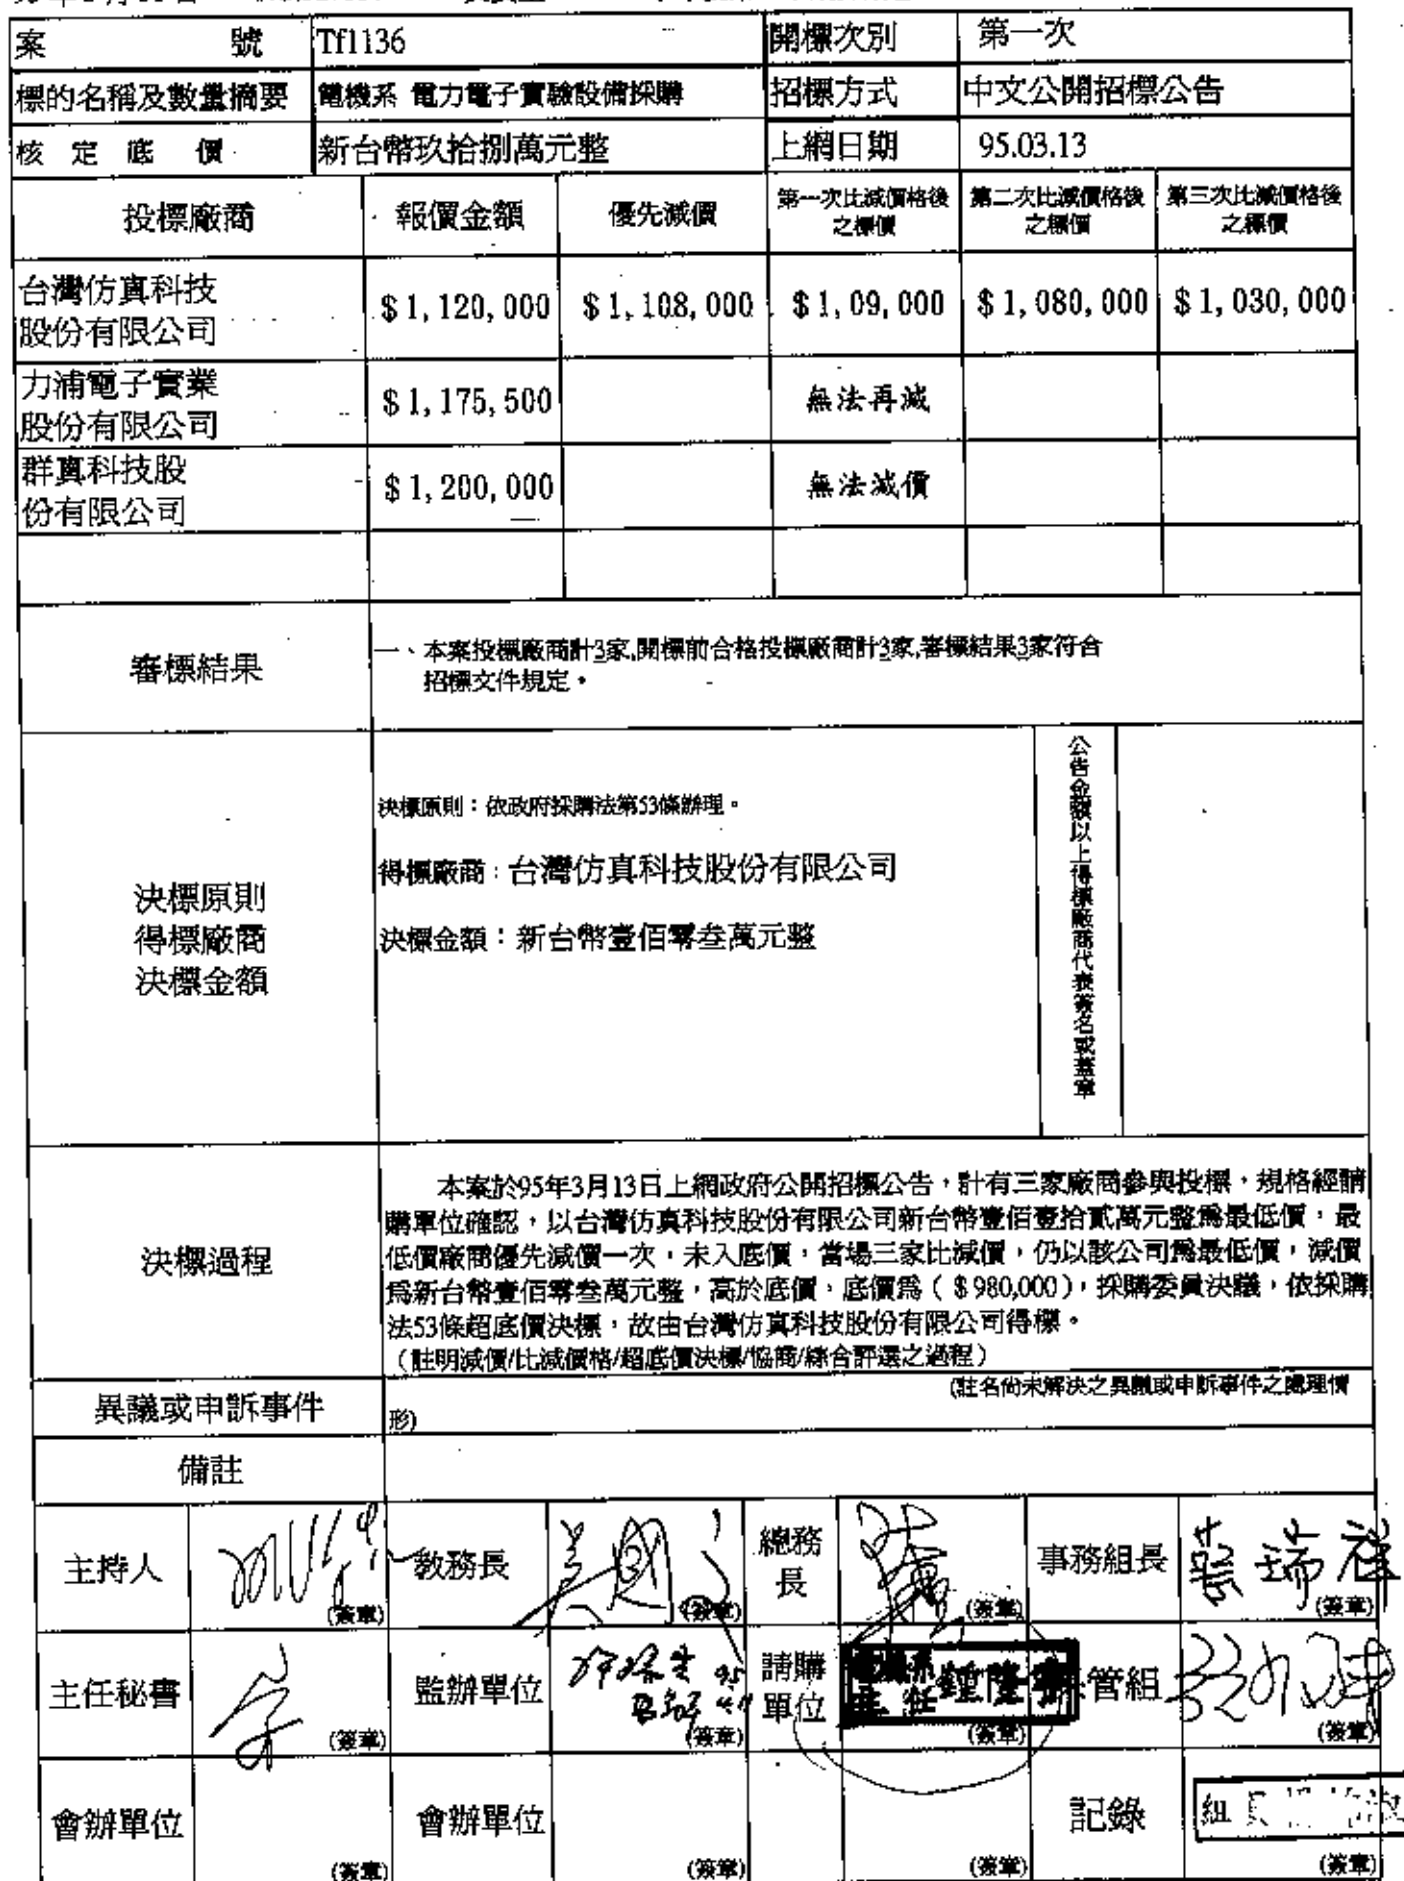 案 號 Tf1136 開標次別 第一次
標的名稱及數量摘要 電機系 電力電子實驗設備採購 招標方式 中文公開招標公告
核 定 底 價 新台幣玖拾捌萬元整 上網日期 95.03.13
投標廠商 報價金額 優先減價 第一次比減價格後之標價 第二次比減價格後之標價 第三次比減價格後之標價
台灣仿真科技
股份有限公司 $1,120,000 $1,108,000 $1,09,000 $1,080,000 $1,030,000
力浦電子實業
股份有限公司 $1,175,500 無法再減
群真科技股
份有限公司 $1,200,000 無法減價
審標結果
一、本案投標廠商計3家,開標前合格投標廠商計3家,審標結果3家符合
招標文件規定。
決標原則
得標廠商
決標金額
決標原則：依政府採購法第53條辦理。
得標廠商：台灣仿真科技股份有限公司
決標金額：新台幣壹佰零叁萬元整
公告金額以上得標廠商代表簽名或蓋章
決標過程
本案於95年3月13日上網政府公開招標公告，計有三家廠商參與投標，規格經請
購單位確認，以台灣仿真科技股份有限公司新台幣壹佰壹拾貳萬元整為最低價，最
低價廠商優先減價一次，未入底價，當場三家比減價，仍以該公司為最低價，減價
為新台幣壹佰零叁萬元整，高於底價，底價為（$980,000），採購委員決議，依採購
法53條超底價決標，故由台灣仿真科技股份有限公司得標。
（註明減價/比減價格/超底價決標/協商/綜合評選之過程）
異議或申訴事件
(註名尚未解決之異議或申訴事件之處理情
形)
備註
主持人 (簽章) 教務長 (簽章) 總務長 (簽章) 事務組長 葉瑞祥 (簽章)
主任秘書 (簽章) 監辦單位 (簽章) 請購單位 (簽章) 管組 (簽章)
會辦單位 (簽章) 會辦單位 (簽章) (簽章) 記錄 (簽章)